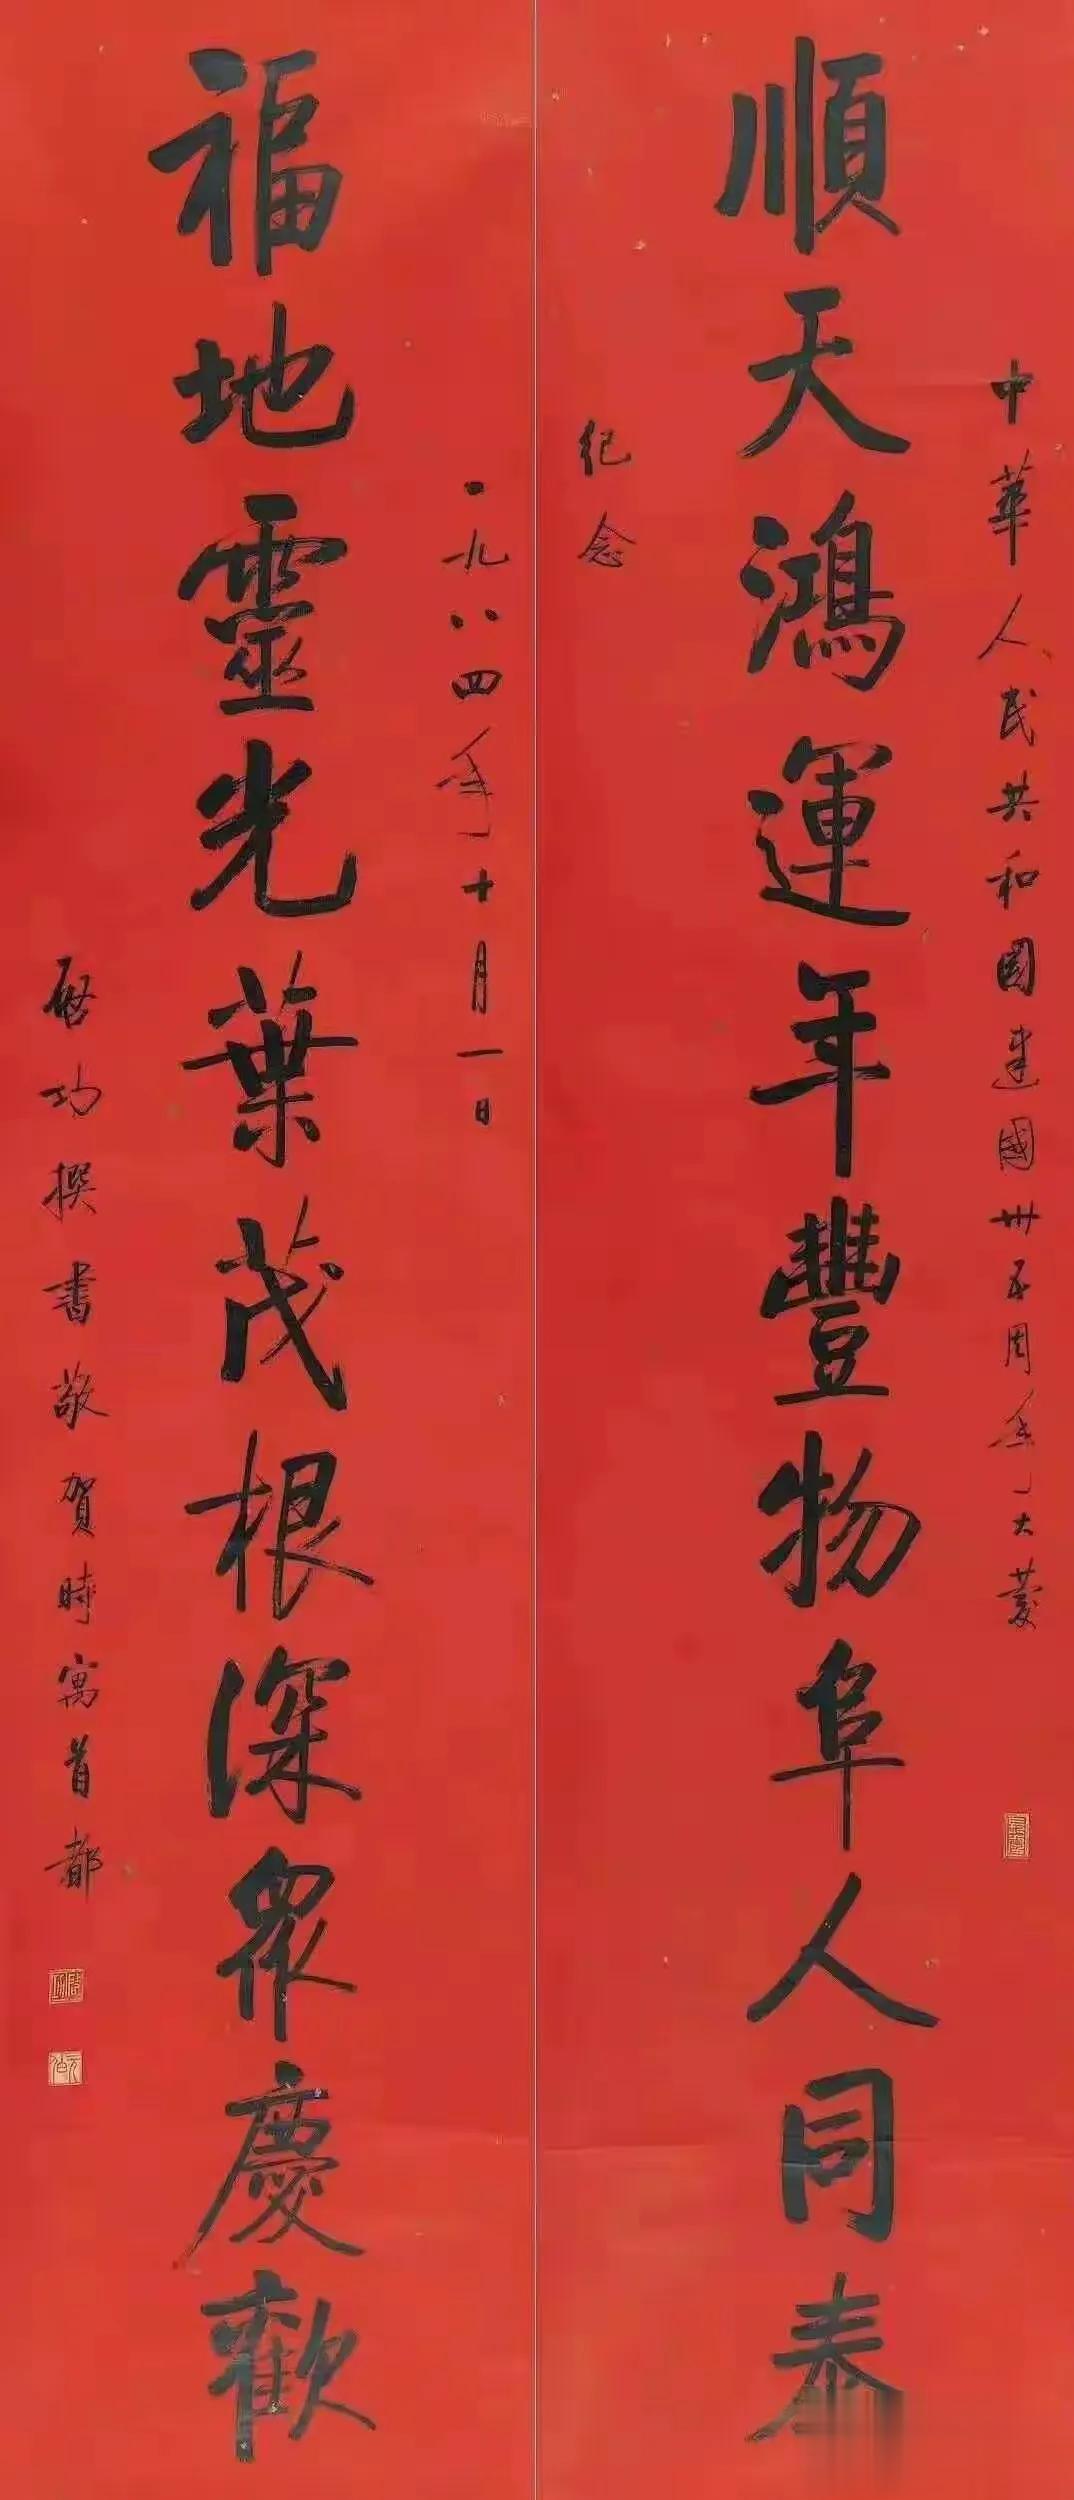 中華人民共和國建國卅五周年大慶
順天鴻運年豐物阜人同泰
紀念
一九八四年十月一日
福地靈光葉茂根深眾慶歡
启功撰書敬賀時寓首都
啓功
元白